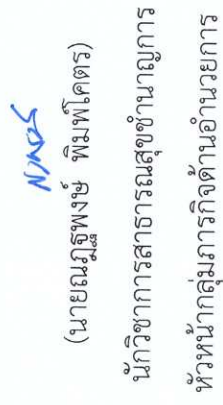 (นายณฏฐพงษ์ พิมพ์โคตร)
นักวิชาการสาธารณสุขชำนาญการ
หัวหน้ากลุ่มภารกิจด้านอำนวยการ